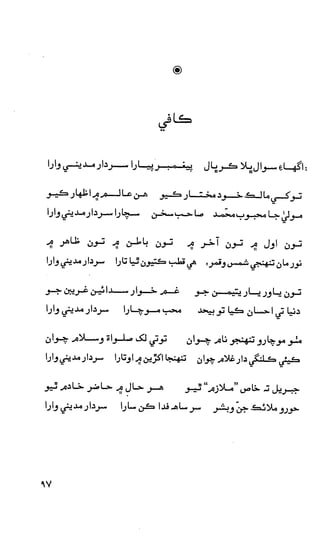 ڪافي
اگهاءِ سوال ڀلا ڪر ڀال پيغمبر پيارا سردار مديني وارا
توکي مالڪ خود مختار ڪيو هن عالم ۾ اظهار ڪيو
موليٰ جا محبوب محمد صاحب سخن سچارا سردار مديني وارا
تون اول ۾ تون آخر ۾ تون باطن ۾ تون ظاهر ۾
نور مان تنهنجي شمس وقمر، هي قطب ڪتيون ٿيا تارا سردار مديني وارا
تون ياور يار يتيمن جو غم خوار سدائين غريبن جو
دنيا تي احسان ڪيا تو بيحد محب موچارا سردار مديني وارا
مٺو موچارو تنهنجو نام چوان توتي لک صلواة وسلام چوان
ڪيئي ڪلنگي دار غلام چوان تنهنجا اڱڙين ۾ اوتارا سردار مديني وارا
جبريل تہ خاص ”ملازم“ ٿيو هر حال ۾ حاضر خادم ٿيو
حورو ملائڪ جن وبشر سر ساهہ فدا ڪن سارا سردار مديني وارا
۹۷